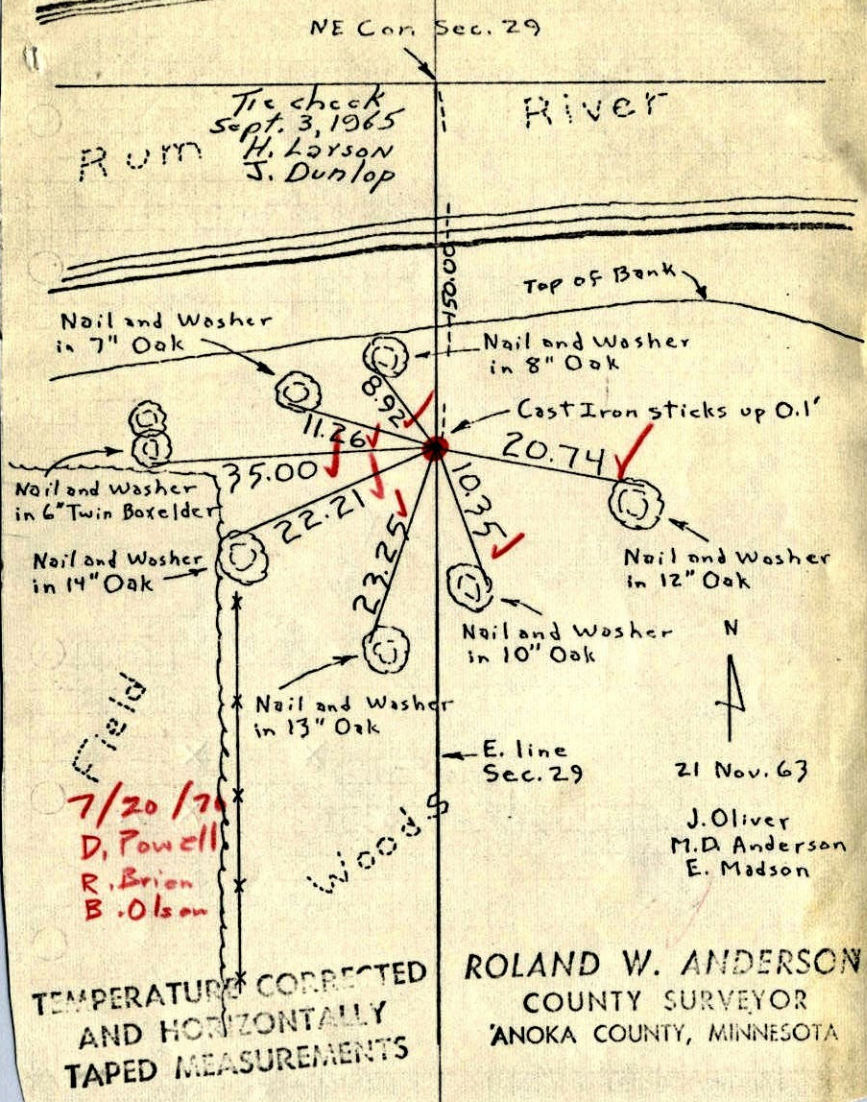 NE Cor. Sec. 29
Tie check
Sept. 3, 1965
H. Larson
J. Dunlop
Rum River
150.00
Top of Bank
Nail and Washer
in 7" Oak
Nail and Washer
in 8" Oak
8.92
Cast Iron sticks up 0.1'
11.26
20.74
35.00
10.35
Nail and Washer
in 6" Twin Boxelder
22.21
23.25
Nail and Washer
in 14" Oak
Nail and Washer
in 12" Oak
Nail and Washer
in 10" Oak
N
Nail and Washer
in 13" Oak
Field
E. line
Sec. 29
21 Nov. 63
7/20/7
D. Powell
R. Brien
B. Olson
Woods
J. Oliver
M.D. Anderson
E. Madson
TEMPERATURE CORRECTED
AND HORIZONTALLY
TAPED MEASUREMENTS
ROLAND W. ANDERSON
COUNTY SURVEYOR
ANOKA COUNTY, MINNESOTA